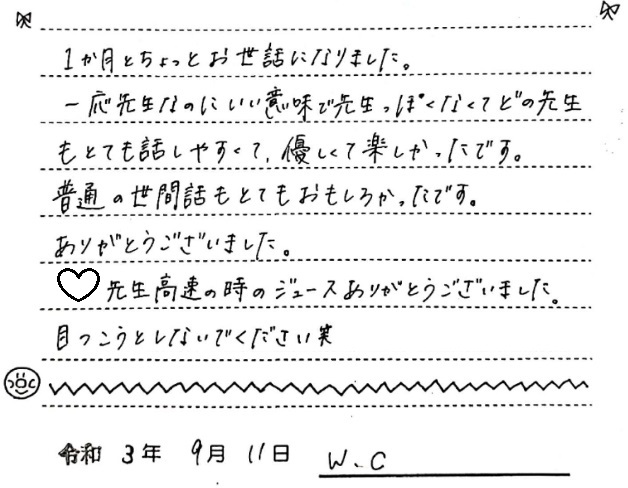 1か月とちょっとお世話になりました。
一応先生なのにいい意味で先生っぽくなくてどの先生
もとても話しやすくて、優しくて楽しかったです。
普通の世間話もとてもおもしろかったです。
ありがとうございました。
♡先生高速の時のジュースありがとうございました。
目つこうとしないでください笑
令和 3年 9月 11日 W.C